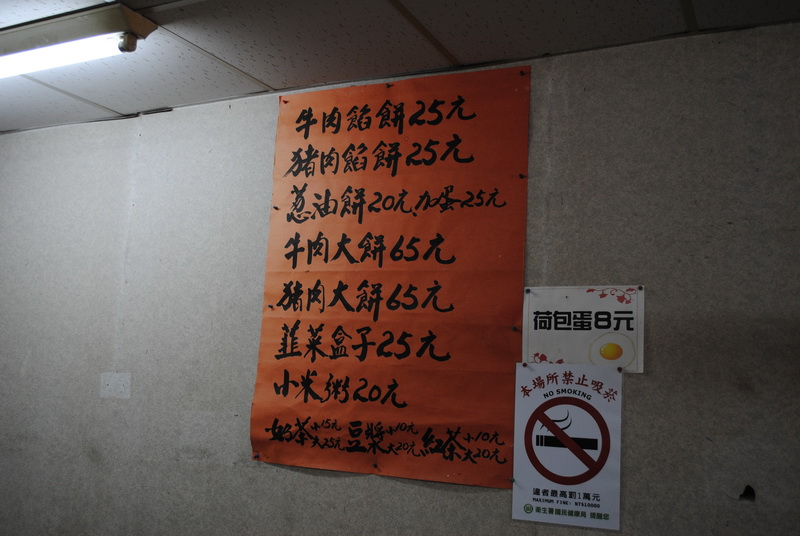 牛肉餡餅25元
豬肉餡餅25元
蔥油餅20元、加蛋25元
牛肉大餅65元
豬肉大餅65元
韮菜盒子25元
小米粥20元
奶茶小15元大25元 豆漿小10元大20元 紅茶小10元大20元
荷包蛋8元
本場所禁止吸菸
NO SMOKING
違者最高罰1萬元
MAXIMUM FINE: NT$10000
衛生署國民健康局 關懷您